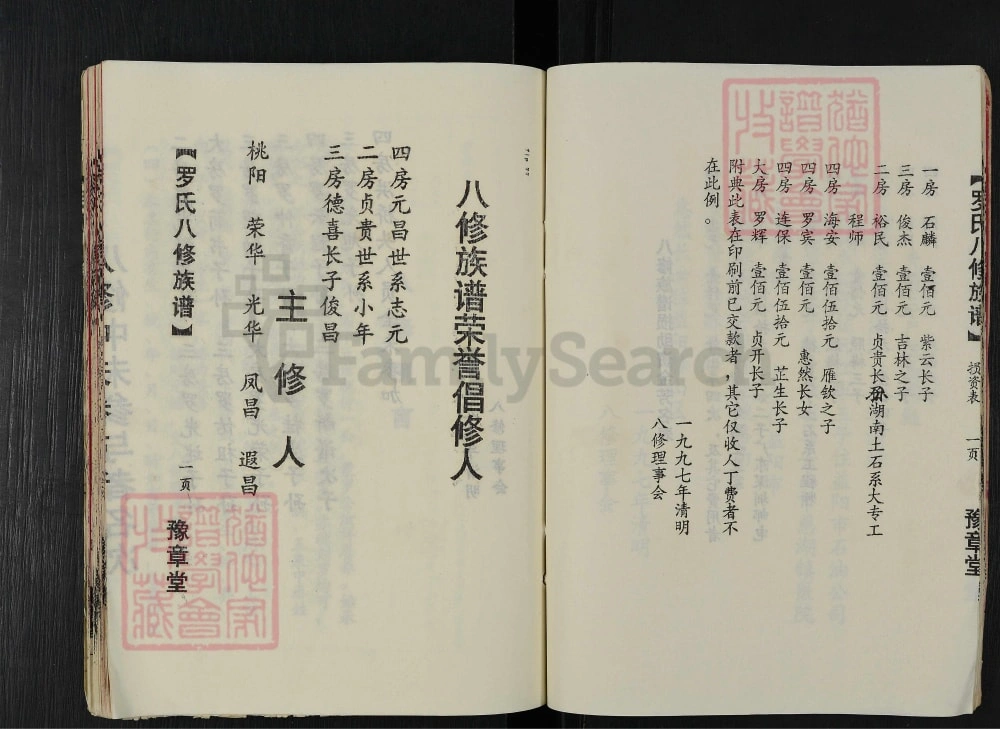 【罗氏八修族谱】 投资表 一页 豫章堂
一房 石麟 壹佰元 紫云长子
三房 俊杰 壹佰元 吉林之子
二房 裕民 壹佰元 贞贵长孙湖南土石系大专工
程师
四房 海安 壹佰伍拾元 雁钦之子
四房 罗宾 壹佰元 惠然长女
四房 连保 壹佰伍拾元 芷生长子
大房 罗辉 壹佰元 贞开长子
附典此表在印刷前已交款者,其它仅收人丁费者不
在此例。
一九九七年清明
八修理事会
八修族谱荣誉倡修人
四房元昌世系志元
二房贞贵世系小年
三房德喜长子俊昌
主修人
桃阳 荣华 光华 凤昌 遐昌
【罗氏八修族谱】 一页 豫章堂
FamilySearch